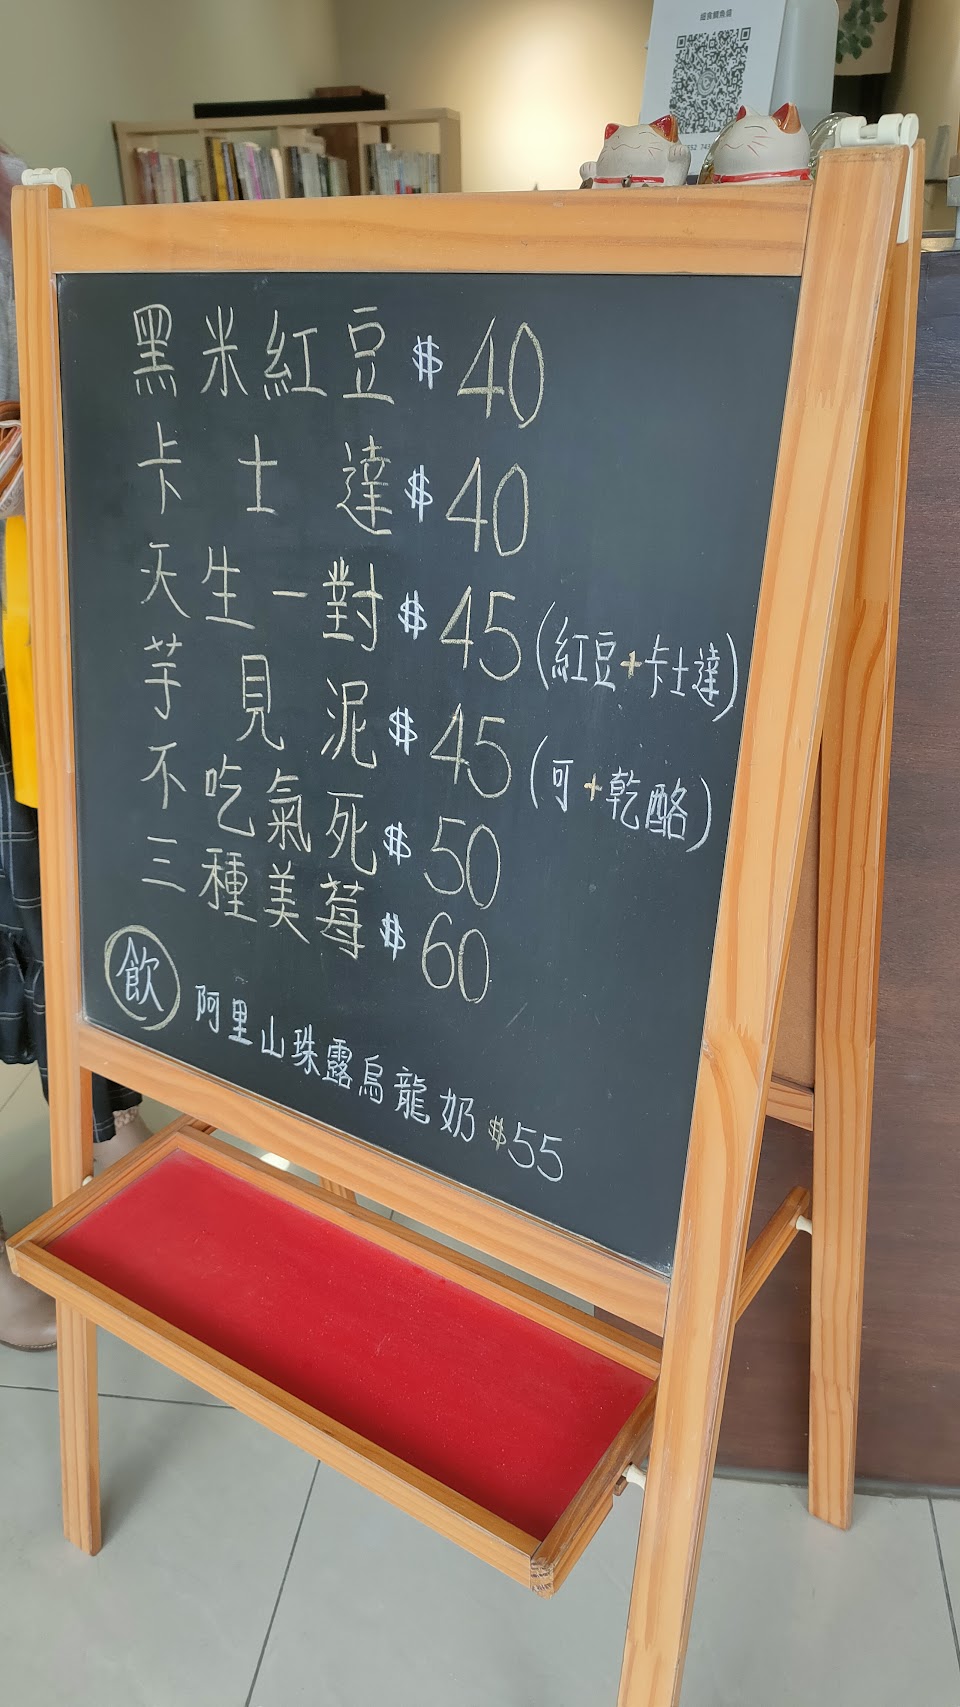 盛食鯛魚燒
黑米紅豆$40
卡士達$40
天生一對$45(紅豆+卡士達)
芋見泥$45(可+乾酪)
不吃氣死$50
三種美莓$60
飲 阿里山珠露烏龍奶$55